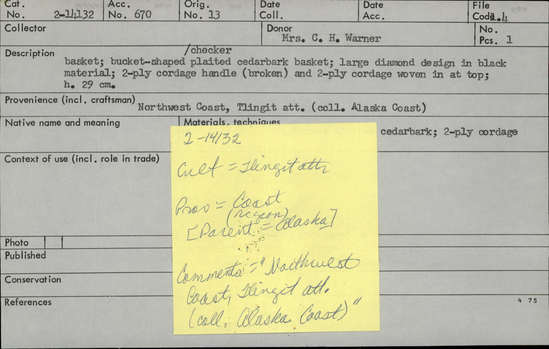 Cat. Acc. Orig. Date Date File
No. 2-14132 No. 670 No. 13 Coll. Acc. Code
Collector Donor No.
Mrs. C. H. Warner Pcs. 1
/checker
Description basket; bucket-shaped plaited cedarbark basket; large diamond design in black
material; 2-ply cordage handle (broken) and 2-ply cordage woven in at top;
h. 29 cm.
Provenience (incl, craftsman) Northwest Coast, Tlingit att. (coll. Alaska Coast)
Native name and meaning Materials, techniques
cedarbark; 2-ply cordage
Context of use (incl. role in trade)
Photo
Published
Conservation
References
4 75
2-14132
Cult = Tlingit att.
Prov = Coast
(region)
[Parent = Alaska]
Comments = "Northwest
Coast, Tlingit att.
(coll. Alaska Coast)"